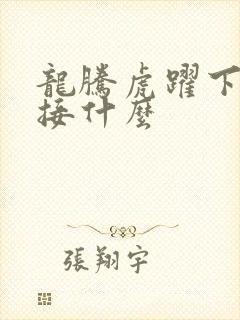 龍騰虎躍下
接什麼
張翔宇